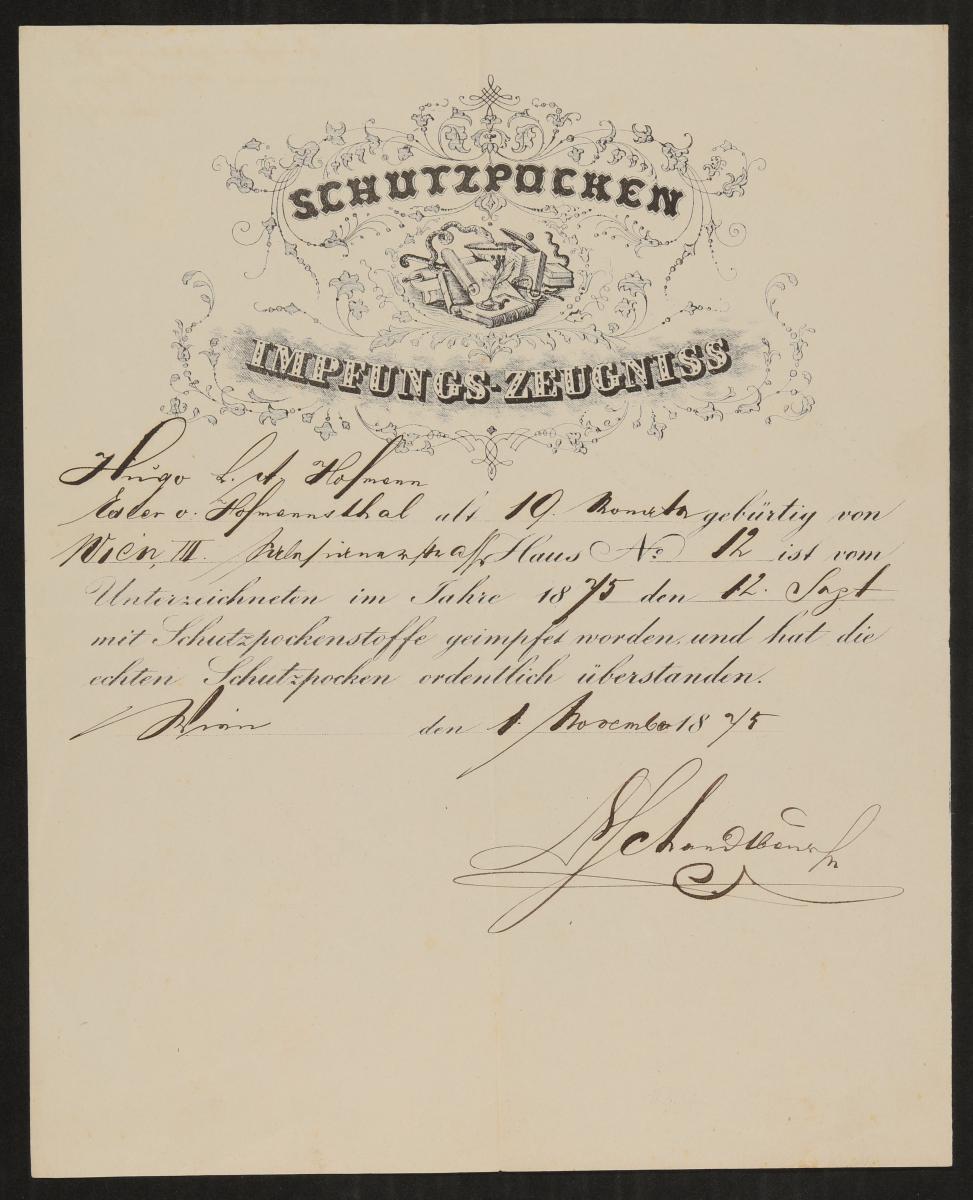 SCHUTZPOCKEN
IMPFUNGS-ZEUGNISS
Hugo L. A. Hofmann
Edler v. Hofmannsthal alt 19 Monate gebürtig von
Wien, III. Salesianergasse Haus No: 12 ist vom
Unterzeichneten im Jahre 1875 den 12. Sept
mit Schutzpockenstoffe geimpfet worden, und hat die
echten Schutzpocken ordentlich überstanden.
Wien den 1. November 1875